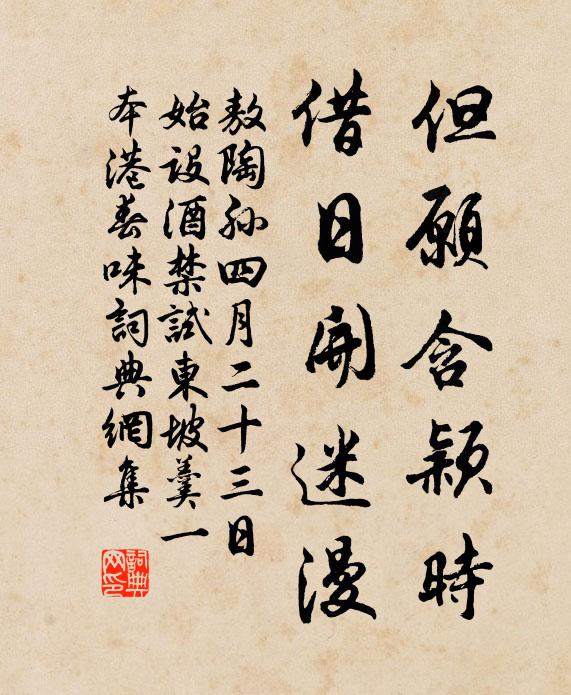 但願含穎時
借日開迷漫
敖陶孫四月二十三日
始設酒禁試東坡羹一
本港春味詞典網集
詞典
网印